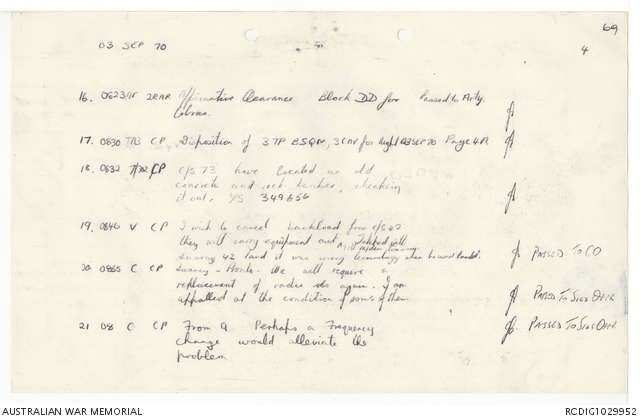 69
03 SEP 70
4
16. 0823 2RAR Affirmative Clearance Block DD for Passed to Arty.
Cobras.
17. 0830 CP Disposition of 3TP BSQN, for night 03 SEP 70 Page 4A
18. 0832 CP C/S 73 have located an old
concrete and rock bunker, checking
it out, YS 349656
19. 0840 V CP I wish to cancel backload for C/S
they will carry equipment out.
42 and it was very
20 0855 C CP We will require a
replacement of radio sets again. I am
appalled at the condition of some of them.
21 08 C CP From 9 Perhaps a Frequency
change would alleviate the
problem
PASSED TO CO
PASSED TO SIGS OFFR
PASSED TO SIGS OFFR
AUSTRALIAN WAR MEMORIAL
RCDIG1029952